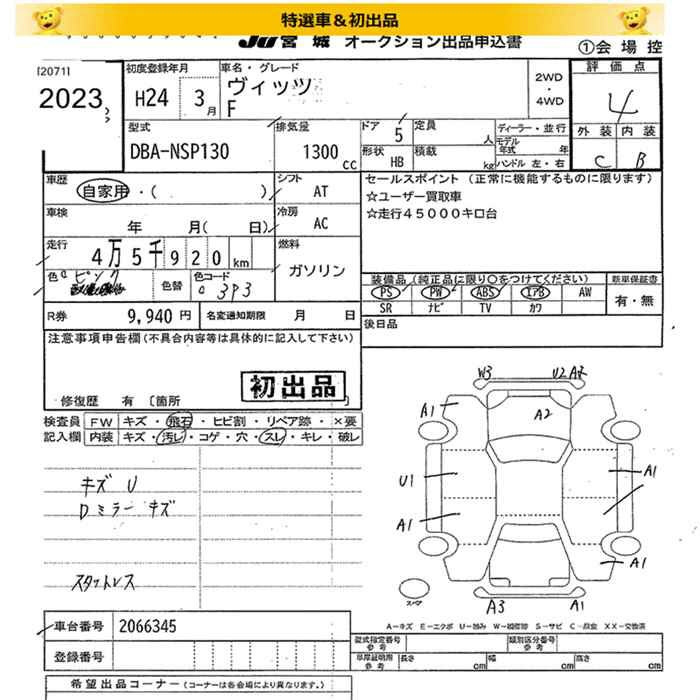 特選車＆初出品
JU宮城 オークション出品申込書
①会場控
[2071]
2023
初度登録年月
H24 3月
車名・グレード
ヴィッツ
F
2WD
・
4WD
評価点
4
外装 内装
C B
型式
DBA-NSP130
排気量
1300 cc
ドア 5
形状 HB
定員 人
積載 kg
ディーラー・並行
モデル年式 年
ハンドル 左・右
車歴
自家用・( )
シフト
AT
車検
年 月( 日)
冷房
AC
走行
4万5千920km
燃料
ガソリン
色 ピンク
色替
色コード
3P3
R券 9,940円
名変通知期限 月 日
セールスポイント (正常に機能するものに限ります)
☆ユーザー買取車
☆走行45000キロ台
装備品 (純正品に限り○をつけてください)
PS PW ABS エアB AW
SR ナビ TV カワ
新車保証書
有・無
後日品
注意事項申告欄 (不具合内容等は具体的に記入して下さい)
初出品
修復歴 有 〔箇所 〕
検査員記入欄
FW キズ・飛石・ヒビ割・リペア跡・×要
内装 キズ・汚レ・コゲ・穴・スレ・キレ・破レ
キズ U
Dミラーキズ
スタットレス
W3 U2 A2
A1 A2
U1 A1
A1
A1
A3 A1
スペア
A－キズ E－エクボ U－凹み W－補修跡 S－サビ C－腐食 XX－交換済
車台番号 2066345
登録番号
型式指定番号 参考
類別区分番号 参考
車庫証明用 参考
長さ cm 幅 cm 高さ cm
希望出品コーナー (コーナーは各会場により異なります。)